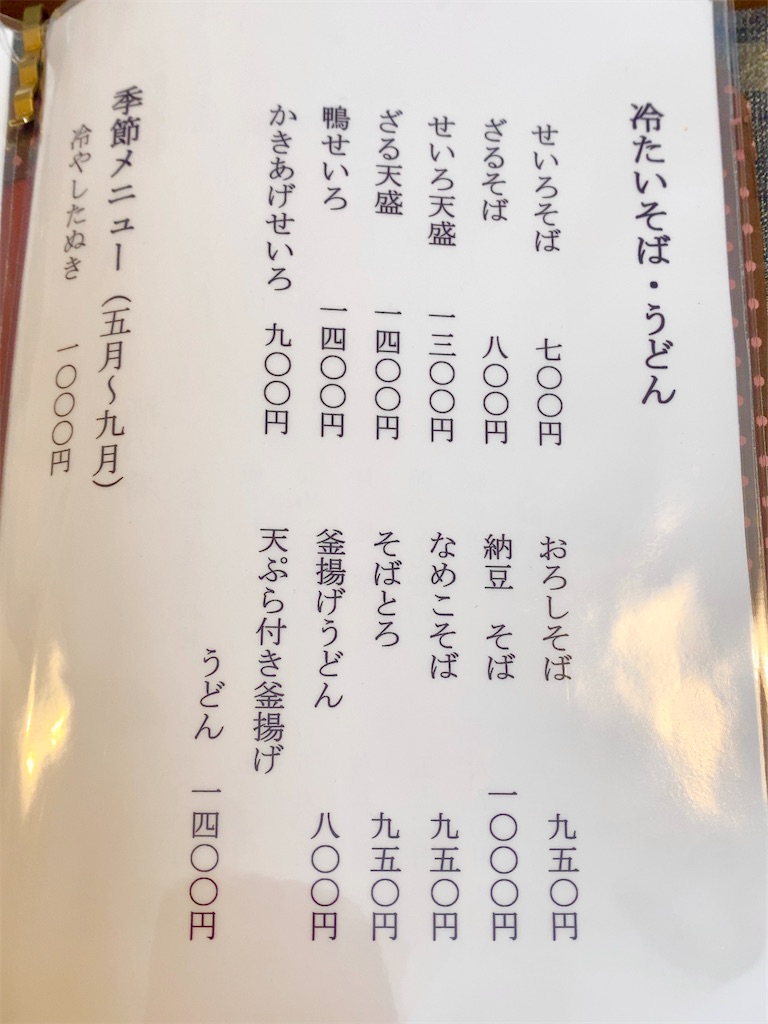 冷たいそば・うどん
せいろそば 七〇〇円
ざるそば 八〇〇円
せいろ天盛 一三〇〇円
ざる天盛 一四〇〇円
鴨せいろ 一四〇〇円
かきあげせいろ 九〇〇円
おろしそば 九五〇円
納豆 そば 一〇〇〇円
なめこそば 九五〇円
そばとろ 九五〇円
釜揚げうどん 八〇〇円
天ぷら付き釜揚げ
うどん 一四〇〇円
季節メニュー(五月~九月)
冷やしたぬき 一〇〇〇円